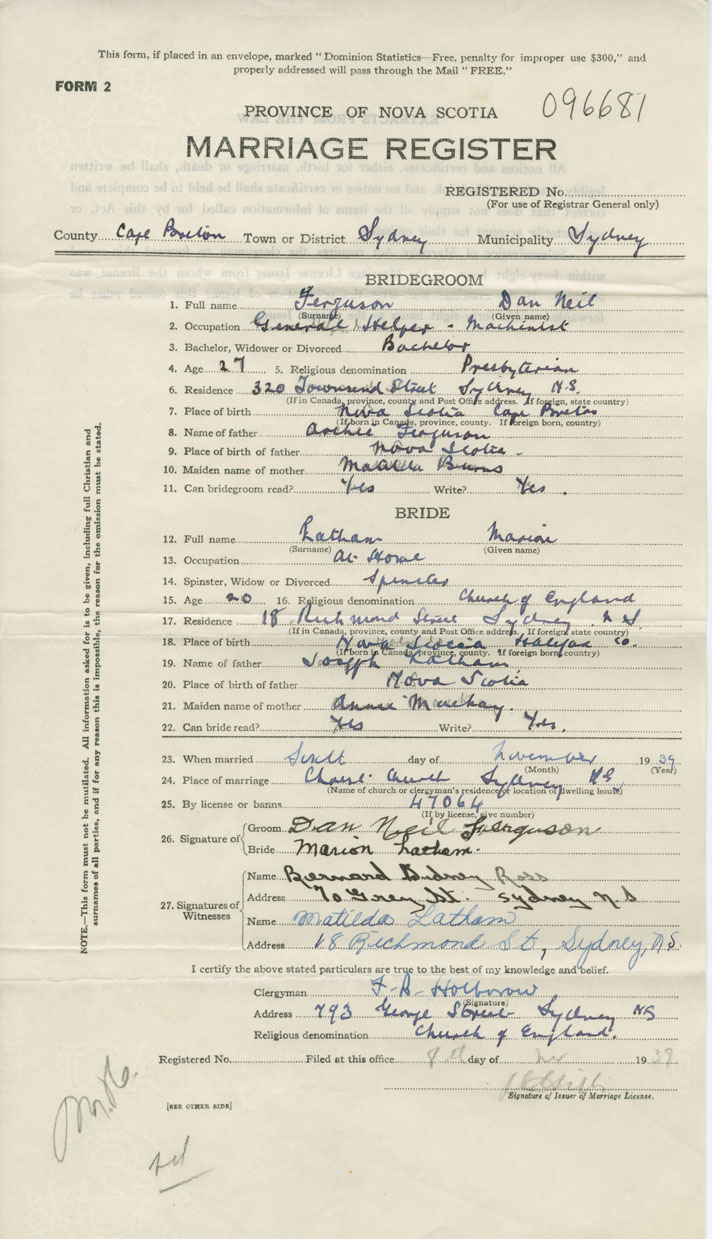 This form, if placed in an envelope, marked " Dominion Statistics—Free, penalty for improper use $300," and
properly addressed will pass through the Mail " FREE."
FORM 2
PROVINCE OF NOVA SCOTIA 096681
MARRIAGE REGISTER
REGISTERED No.
(For use of Registrar General only)
County Cape Breton Town or District Sydney Municipality Sydney
BRIDEGROOM
1. Full name Ferguson Dan Neil
(Surname) (Given name)
2. Occupation General Helper - Machinist
3. Bachelor, Widower or Divorced Bachelor
4. Age 27 5. Religious denomination Presbyterian
6. Residence 320 Townsend Street Sydney N.S.
(If in Canada, province, county and Post Office address. If foreign, state country)
7. Place of birth Nova Scotia Cape Breton
(If born in Canada, province, county. If foreign born, country)
8. Name of father Archie Ferguson
9. Place of birth of father Nova Scotia
10. Maiden name of mother Burns
11. Can bridegroom read? Yes Write? Yes.
BRIDE
12. Full name Latham Marion
(Surname) (Given name)
13. Occupation At Home
14. Spinster, Widow or Divorced Spinster
15. Age 20 16. Religious denomination Church of England
17. Residence 18 Richmond Street Sydney N.S.
(If in Canada, province, county and Post Office address. If foreign, state country)
18. Place of birth Nova Scotia Halifax Co.
(If born in Canada, province, county. If foreign born, country)
19. Name of father Joseph Latham.
20. Place of birth of father Nova Scotia
21. Maiden name of mother Annie
22. Can bride read? Yes Write? Yes.
23. When married day of November 1939
(Month) (Year)
24. Place of marriage Christ Church Sydney N.S.
(Name of church or clergyman's residence or location of dwelling house)
25. By license or banns 47064
(If by license, give number)
26. Signature of
Groom Dan Neil Ferguson
Bride Marion Latham.
27. Signatures of Witnesses
Name Bernard Sidney Ross
Address 70 Grey St. Sydney N S
Name Matilda Latham
Address 18 Richmond St, Sydney, N.S.
I certify the above stated particulars are true to the best of my knowledge and belief.
Clergyman Holborow
(Signature)
Address 793 George Street Sydney NS
Religious denomination Church of England.
Registered No. Filed at this office 8th day of Nov 1939
Signature of Issuer of Marriage License.
[SEE OTHER SIDE]
NOTE.—This form must not be mutilated. All information asked for is to be given, including full Christian and
surnames of all parties, and if for any reason this is impossible, the reason for the omission must be stated.